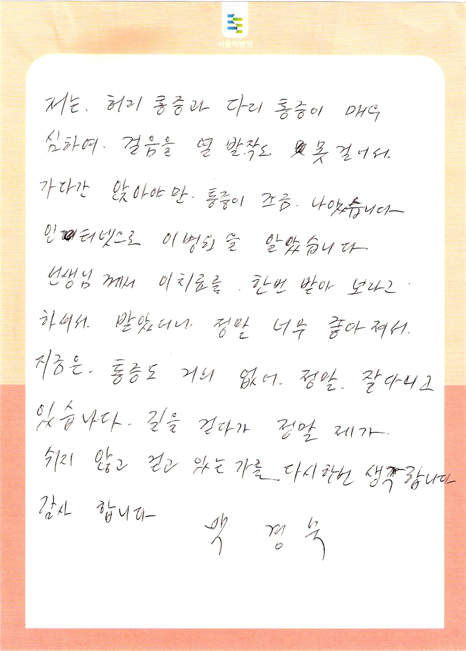 저는. 허리 통증과 다리 통증이 매우
심하여. 걸음을 열 발작도 못 걸어서.
가다간 앉아야만. 통증이 조금. 나았습니다
인터넷으로 이병원을 알았습니다
선생님께서 이치료를. 한번 받아 보라고
하셔서. 받았더니. 정말 너무 좋아져서.
지금은. 통증도 거의 없어. 정말. 잘다니고
있습니다. 길을 걷다가 정말 제가.
쉬지 않고 걷고 있는가를 다시한번 생각합니다
감사 합니다
백 경